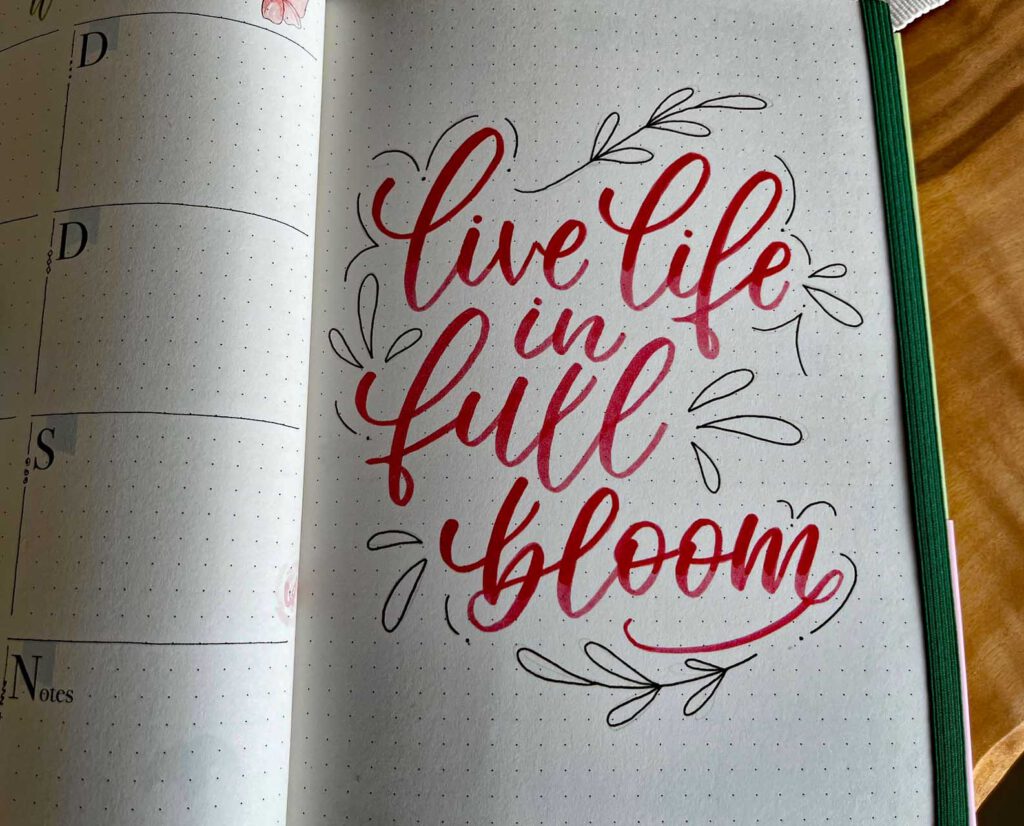 D
D
S
Notes
live life
in
full
bloom